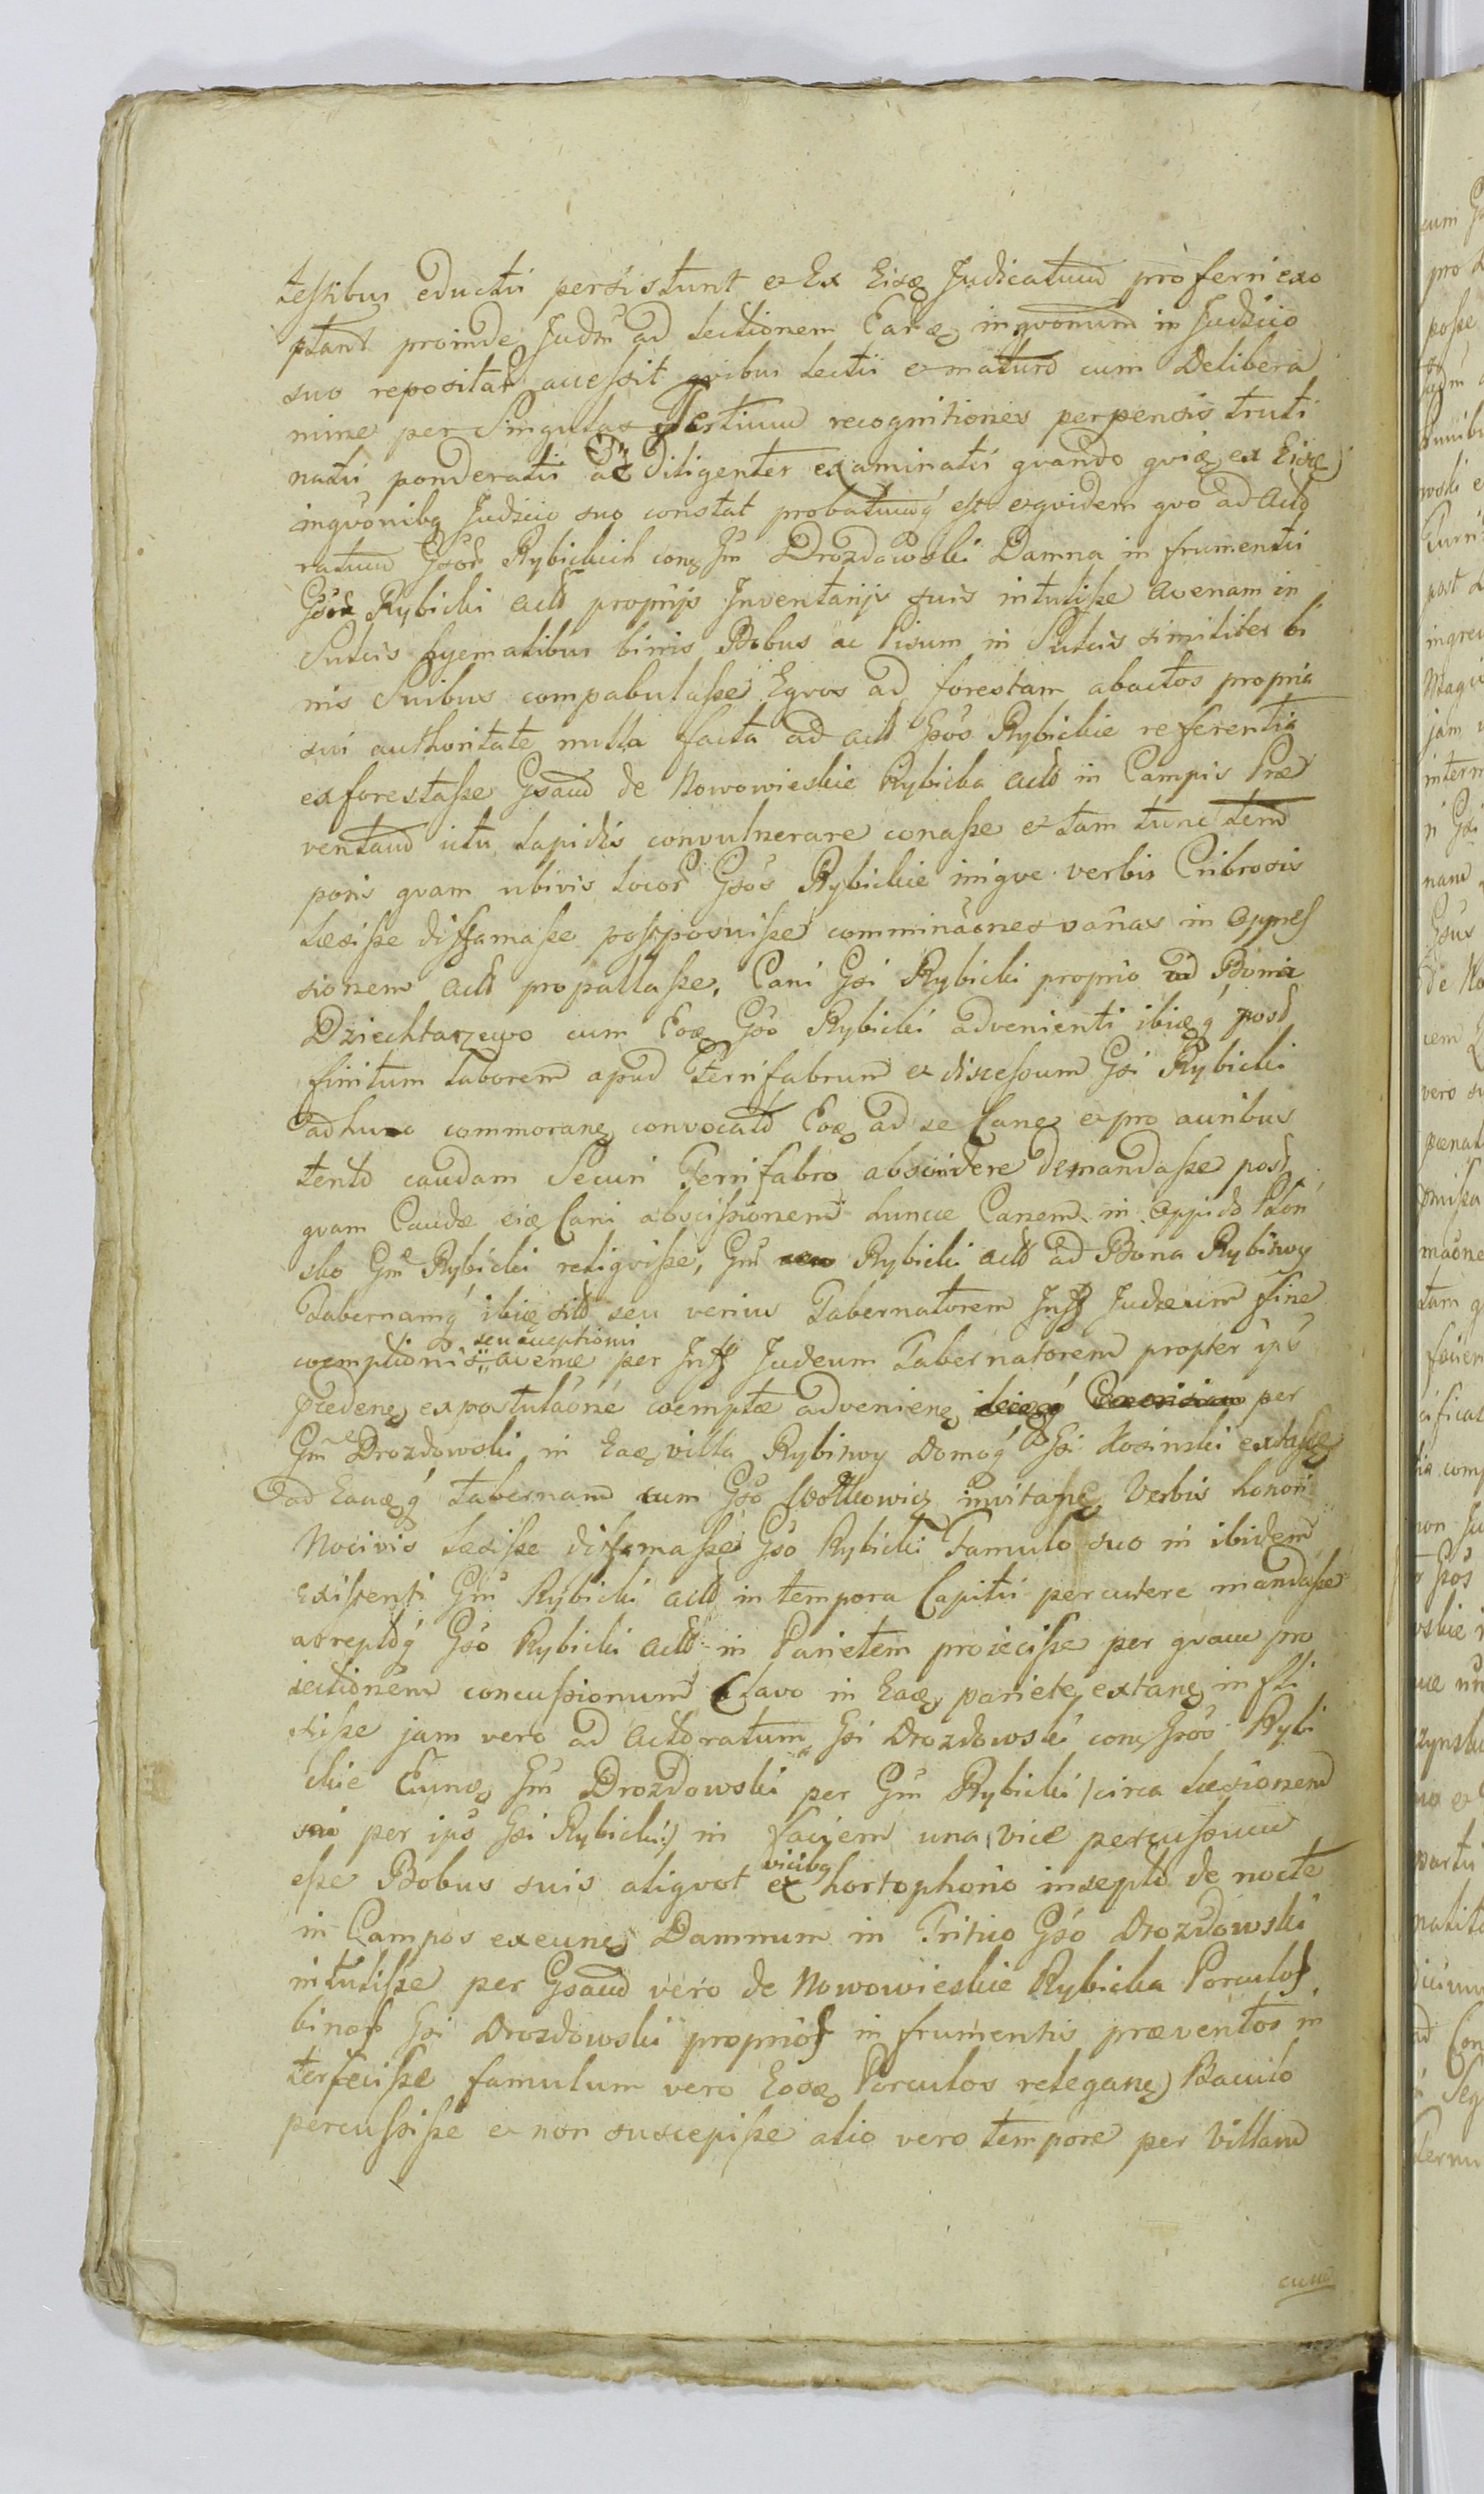 testibus eductii persistunt et Ex Eisq Judicatum pro ferri exo
ptant proinde Judm ad lectionem Earq inqvonum in Judicio
suo repositar accessit qvibus lectii et maturo cum Delibera
mine per Singulas Testium recognitiones perpensis truti
natii ponderatii ac diligenter examinatii qvando qviq ex Eisq
inqvonibq Judicio suo constat probatumq est et qvidem qvo ad Acto
ratum Gsor Rybickich conq Gm Drozdowski Damna in frumentii
Gsor Rybicki Acto proprijs Inventarijs suis intulisse avenam in
Sulcis hyemalibus binis Bobus ac Pisum in Sulcis similiter bi
nis Suibus compabulasse Eqvos ad forestam abactos propria
sui authoritate nulla facta ad act Gsos Rybickie referentia
exforestasse Gsam de Nowowieskie Rybicka acto in Campis Præ
ventam ictu lapidis convulnerare conasse et tam tunc tem
poris qvam ubivis locor Gsos Rybickie iniqve verbis Cribrosis
læsisse diffamasse postposuisse comminaones varias in oppres
sionem acto propallasse, Cani Gsi Rybicki proprio ad Bona
Dziechtarzewo cum Eoq Gso Rybicki advenienti ibiqq post
finitum laborem apud Ferrifabrum et discessum Gsi Rybicki
adhuc commoranq convocato Eoq ad se Cane et pro auribus
tento caudam Securi Ferrifabro abscindere demandasse post
qvam Caudæ eiq Cani abscissionem huncce Canem in oppido Płon
sko Gm Rybicki reliqvisse, Gm Rybicki acto ad Bona Rybitwy
Tabernamq ibiq sito seu verius Tabernatorem Inff Judæum fine
coemptionis seu acceptionis avenæ per Inff Judeum Tabernatorem propter ips
præcedenq expostulaone coemptæ advenienq per
Gm Drozdowski in Eaq villa Rybitwy Domoq Gsi Kosinski extasseq
ad Eamqq tabernam cum Gso Wołkowicz invitasse Verbis honori
Nocivis læsisse diffamasse Gso Rybicki Famulo suo in ibidem
Existenti Gm Rybicki acto in tempora Capitii percutere mandasse
arreptoq Gso Rybicki acto in Parietem projecisse per qvam pro
jectionem concussionum Clavo in Eaq pariete extanq infli
xisse jam vero ad Actoratum Gsi Drozdowski conq Gsos Rybi
ckie Eunq Gm Drozdowski per Gm Rybicki /circa læsionem
sui per ips Gsi Rybicki:/ in faciem una vice percussum
esse Bobus suis aliqvot vicibq ex hortophorio insepto de nocte
in Campos exeunq Damnum in Tritico Gso Drozdowski
intulisse per Gsam vero de Nowowieskie Rybicka Porculos
binos Gsi Drozdowski proprios in frumentis præventos in
terfecisse famulum vero Eosq Porculos releganq Baculo
percussisse et non suscepisse alio vero tempore per Villam
cum